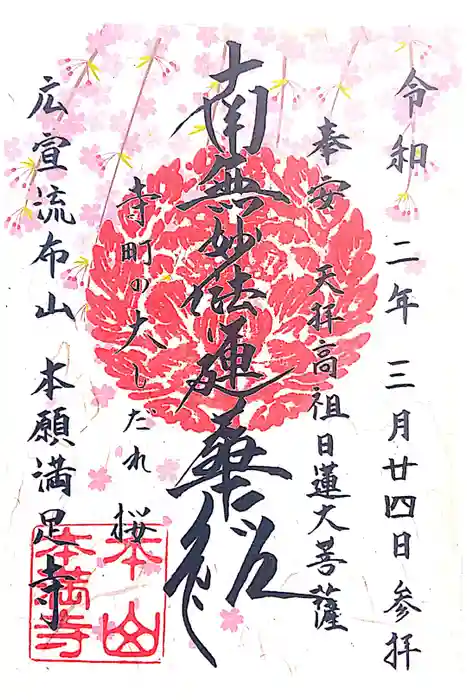 令和 二年 三月廿四日 参拝
奉安 天拝高祖日蓮大菩薩
南無妙法蓮華経
寺町の大しだれ桜
広宣流布山 本願満足寺
本山
本満寺